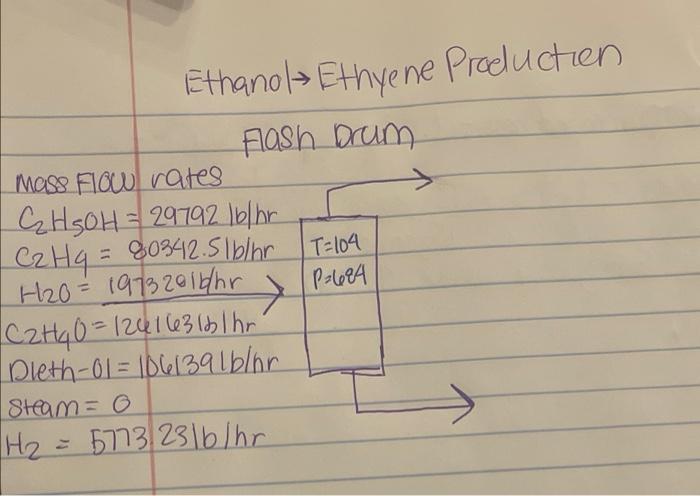 Ethanol→ Ethyene Production
Flash Drum
Mass Flow rates
C2H5OH = 29792 lb/hr
C2H4 = 80342.5 lb/hr
H2O = 197320 lb/hr
C2H4O = 124163 lb/hr
Dieth-01 = 106139 lb/hr
Steam = 0
H2 = 5773.23 lb/hr
T=104
P=684